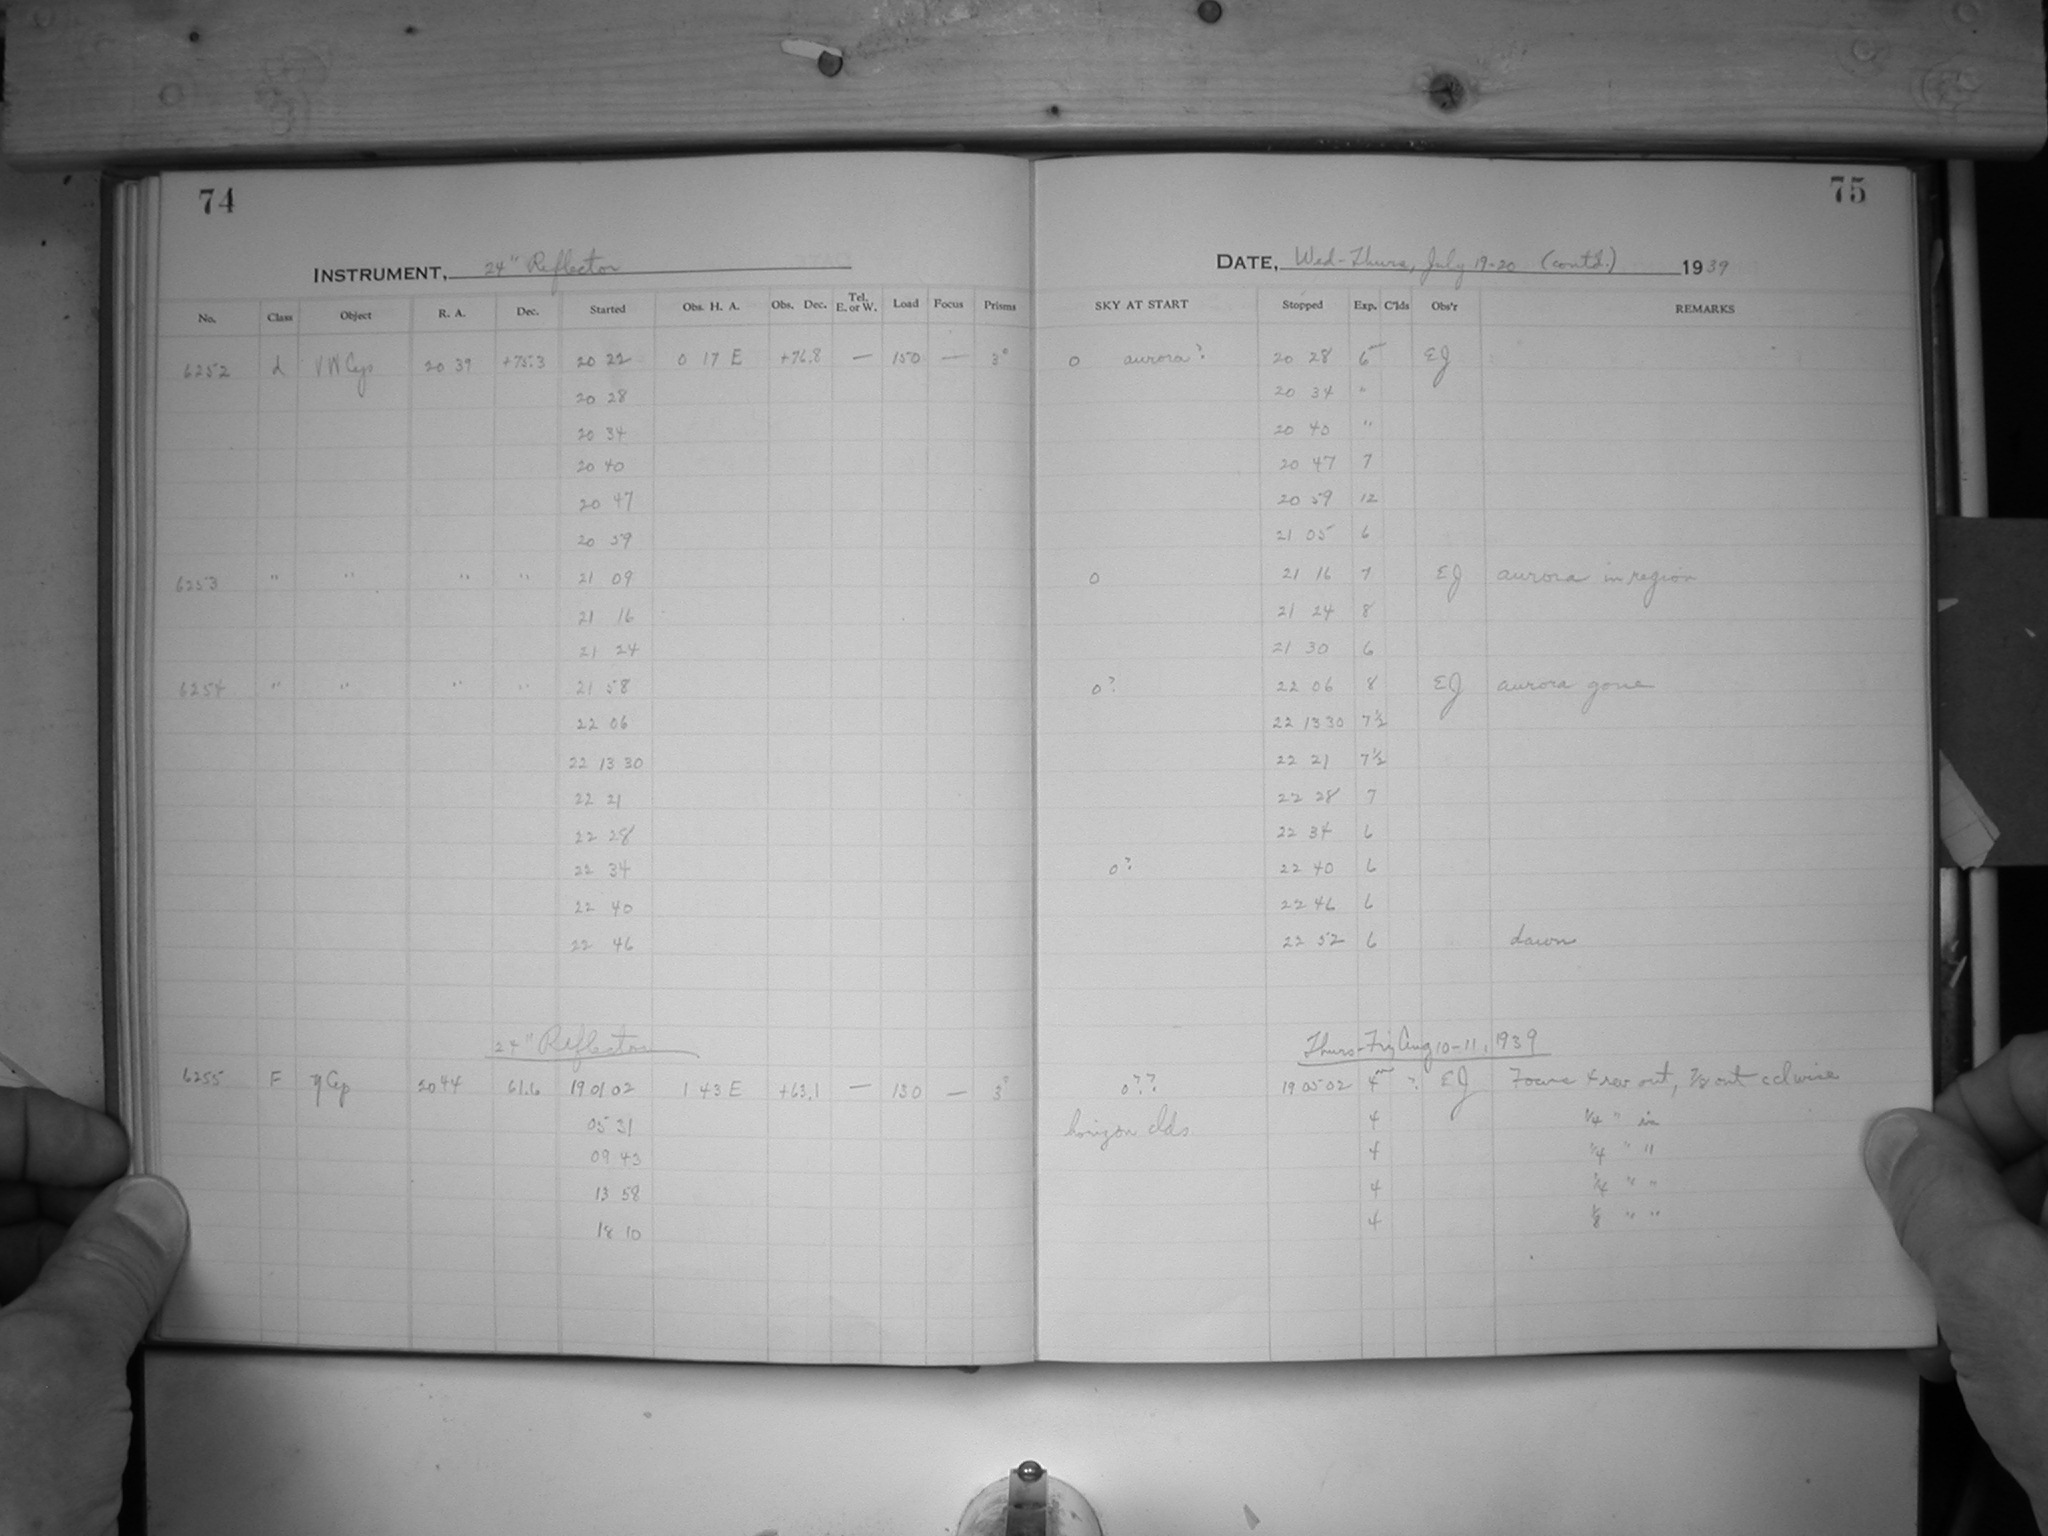 74
INSTRUMENT, 24" Reflector
No. Class Object R. A. Dec. Started Obs. H. A. Obs. Dec. Tel. E. or W. Load Focus Prisms
6252 d VW Cep 20 39 +75.3 20 22 0 17 E +76.8 — 150 — 3°
20 28
20 34
20 40
20 47
20 59
6253 " " " " 21 09
21 16
21 24
6254 " " " " 21 58
22 06
22 13 30
22 21
22 28
22 34
22 40
22 46
24" Reflector
6255 F η Cep 20 44 61.6 19 01 02 1 43 E +63.1 — 130 — 3°
05 31
09 43
13 58
18 10
75
DATE, Wed-Thurs, July 19-20 (contd.) 1939
SKY AT START Stopped Exp. C'lds Obs'r REMARKS
0 aurora? 20 28 6m EJ
20 34 "
20 40 "
20 47 7
20 59 12
21 05 6
0 21 16 7 EJ aurora in region
21 24 8
21 30 6
0? 22 06 8 EJ aurora gone
22 13 30 7½
22 21 7½
22 28 7
22 34 6
0? 22 40 6
22 46 6
22 52 6 dawn
Thurs-Fri, Aug 10-11, 1939
0?? 19 05 02 4m ? EJ Focus 4 rev out, out cclwise
horizon clds 4 ¼ " in
4 ¼ " "
4 ¼ " "
4 ⅛ " "